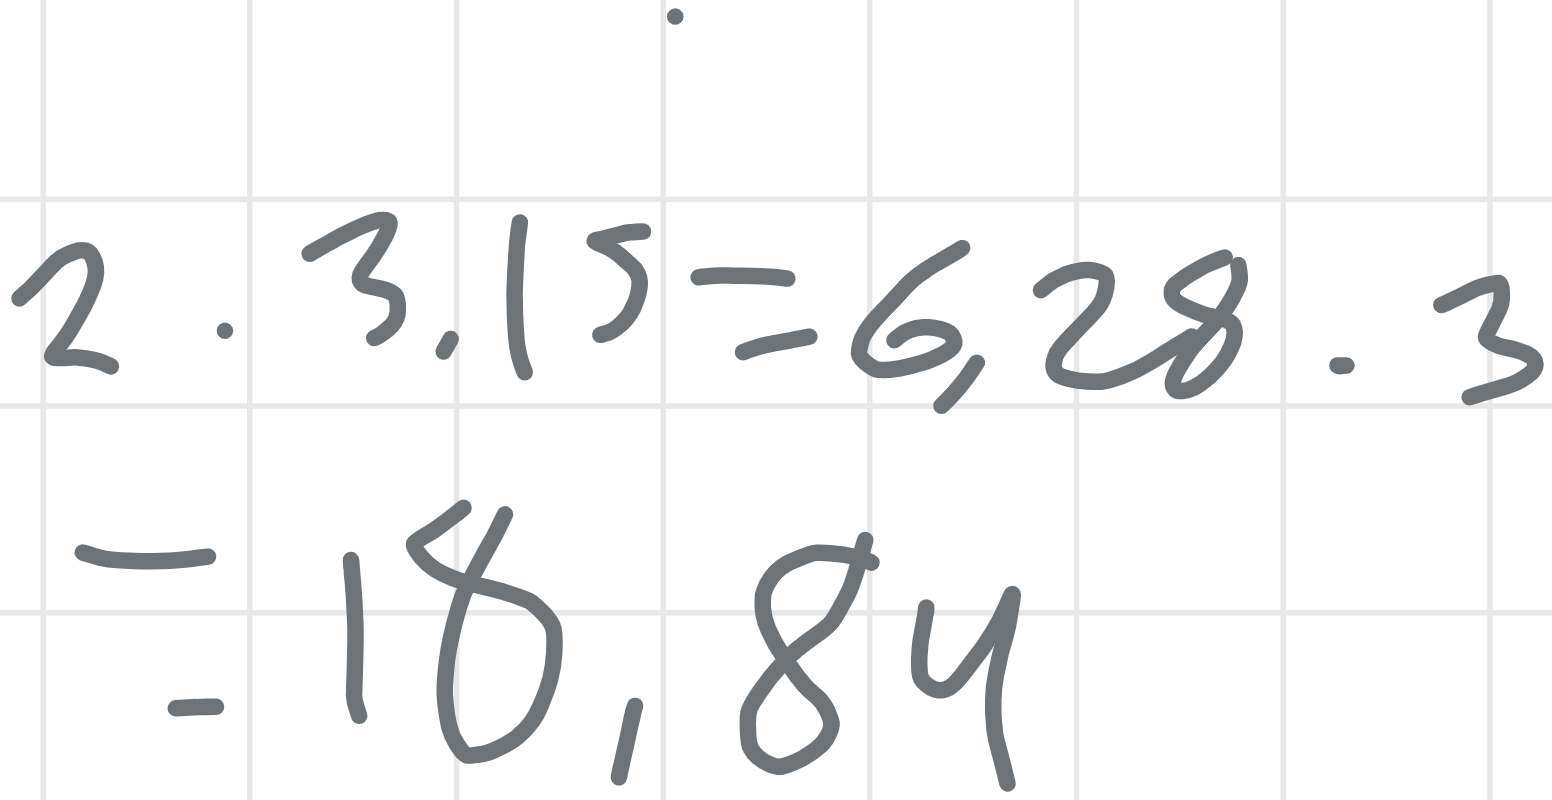 2 . 3,15 = 6,28 . 3
= 18,84